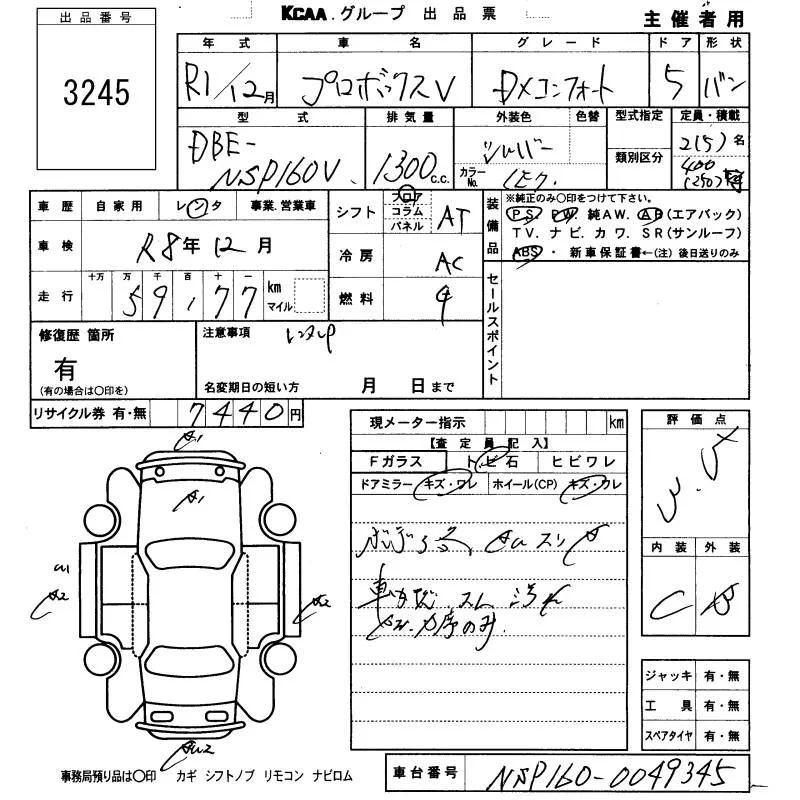 出品番号
3245
KCAA.グループ 出品票
主催者用
年式 車名 グレード ドア 形状
R1/12月 プロボックスV DXコンフォート 5 バン
型式 排気量 外装色 色替 型式指定 定員・積載
DBE-
NSP160V 1300c.c. シルバー 類別区分 2(5)名
カラーNo. 1E7 400
(250)
車歴 自家用 レンタ 事業.営業車
車検 R8年12月
走行 十万 万 千 百 十 一
59,177 km
マイル
シフト フロア コラム パネル AT
冷房 AC
燃料
装備品
※純正のみ○印をつけて下さい。
PS. PW. 純AW. AB(エアバック)
TV. ナビ. カワ. SR(サンルーフ)
ABS ・ 新車保証書←(注)後日送りのみ
セールスポイント
修復歴 箇所
有
(有の場合は○印を)
注意事項 レンタUP
名変期日の短い方 月 日まで
リサイクル券 有・無 7440円
現メーター指示 km
【査定員記入】
Fガラス トビ石 ヒビワレ
ドアミラー キズ・ワレ ホイール(CP) キズ・ワレ
スリ
汚れ
評価点
3.5
内装 外装
C B
A1
A1
A2
A2
ジャッキ 有・無
工具 有・無
スペアタイヤ 有・無
事務局預り品は○印 カギ シフトノブ リモコン ナビロム
車台番号 NSP160-0049345